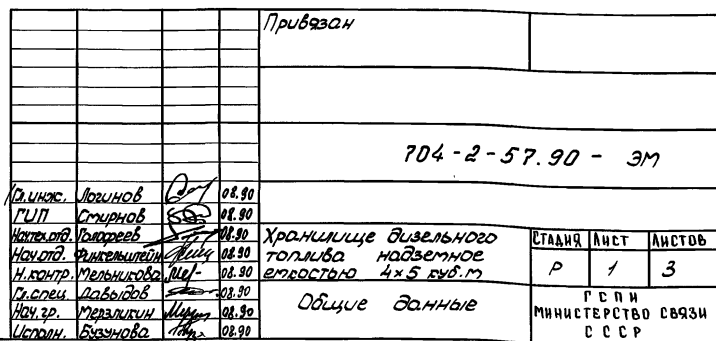 Привязан
704-2-57.90 - ЭМ
Гл.инж. Логинов 08.90
ГИП Смирнов 08.90
Нач.тех.отд. Голофеев 08.90
Нач.отд. Финкельштейн 08.90
Н.контр. Мельникова 08.90
Гл.спец. Давыдов 08.90
Нач.гр. Мерзликин 08.90
Исполн. Бузунова 08.90
Хранилище дизельного
топлива надземное
емкостью 4×5 куб.м
Общие данные
Стадия Лист Листов
Р 1 3
ГСПИ
Министерство связи
СССР